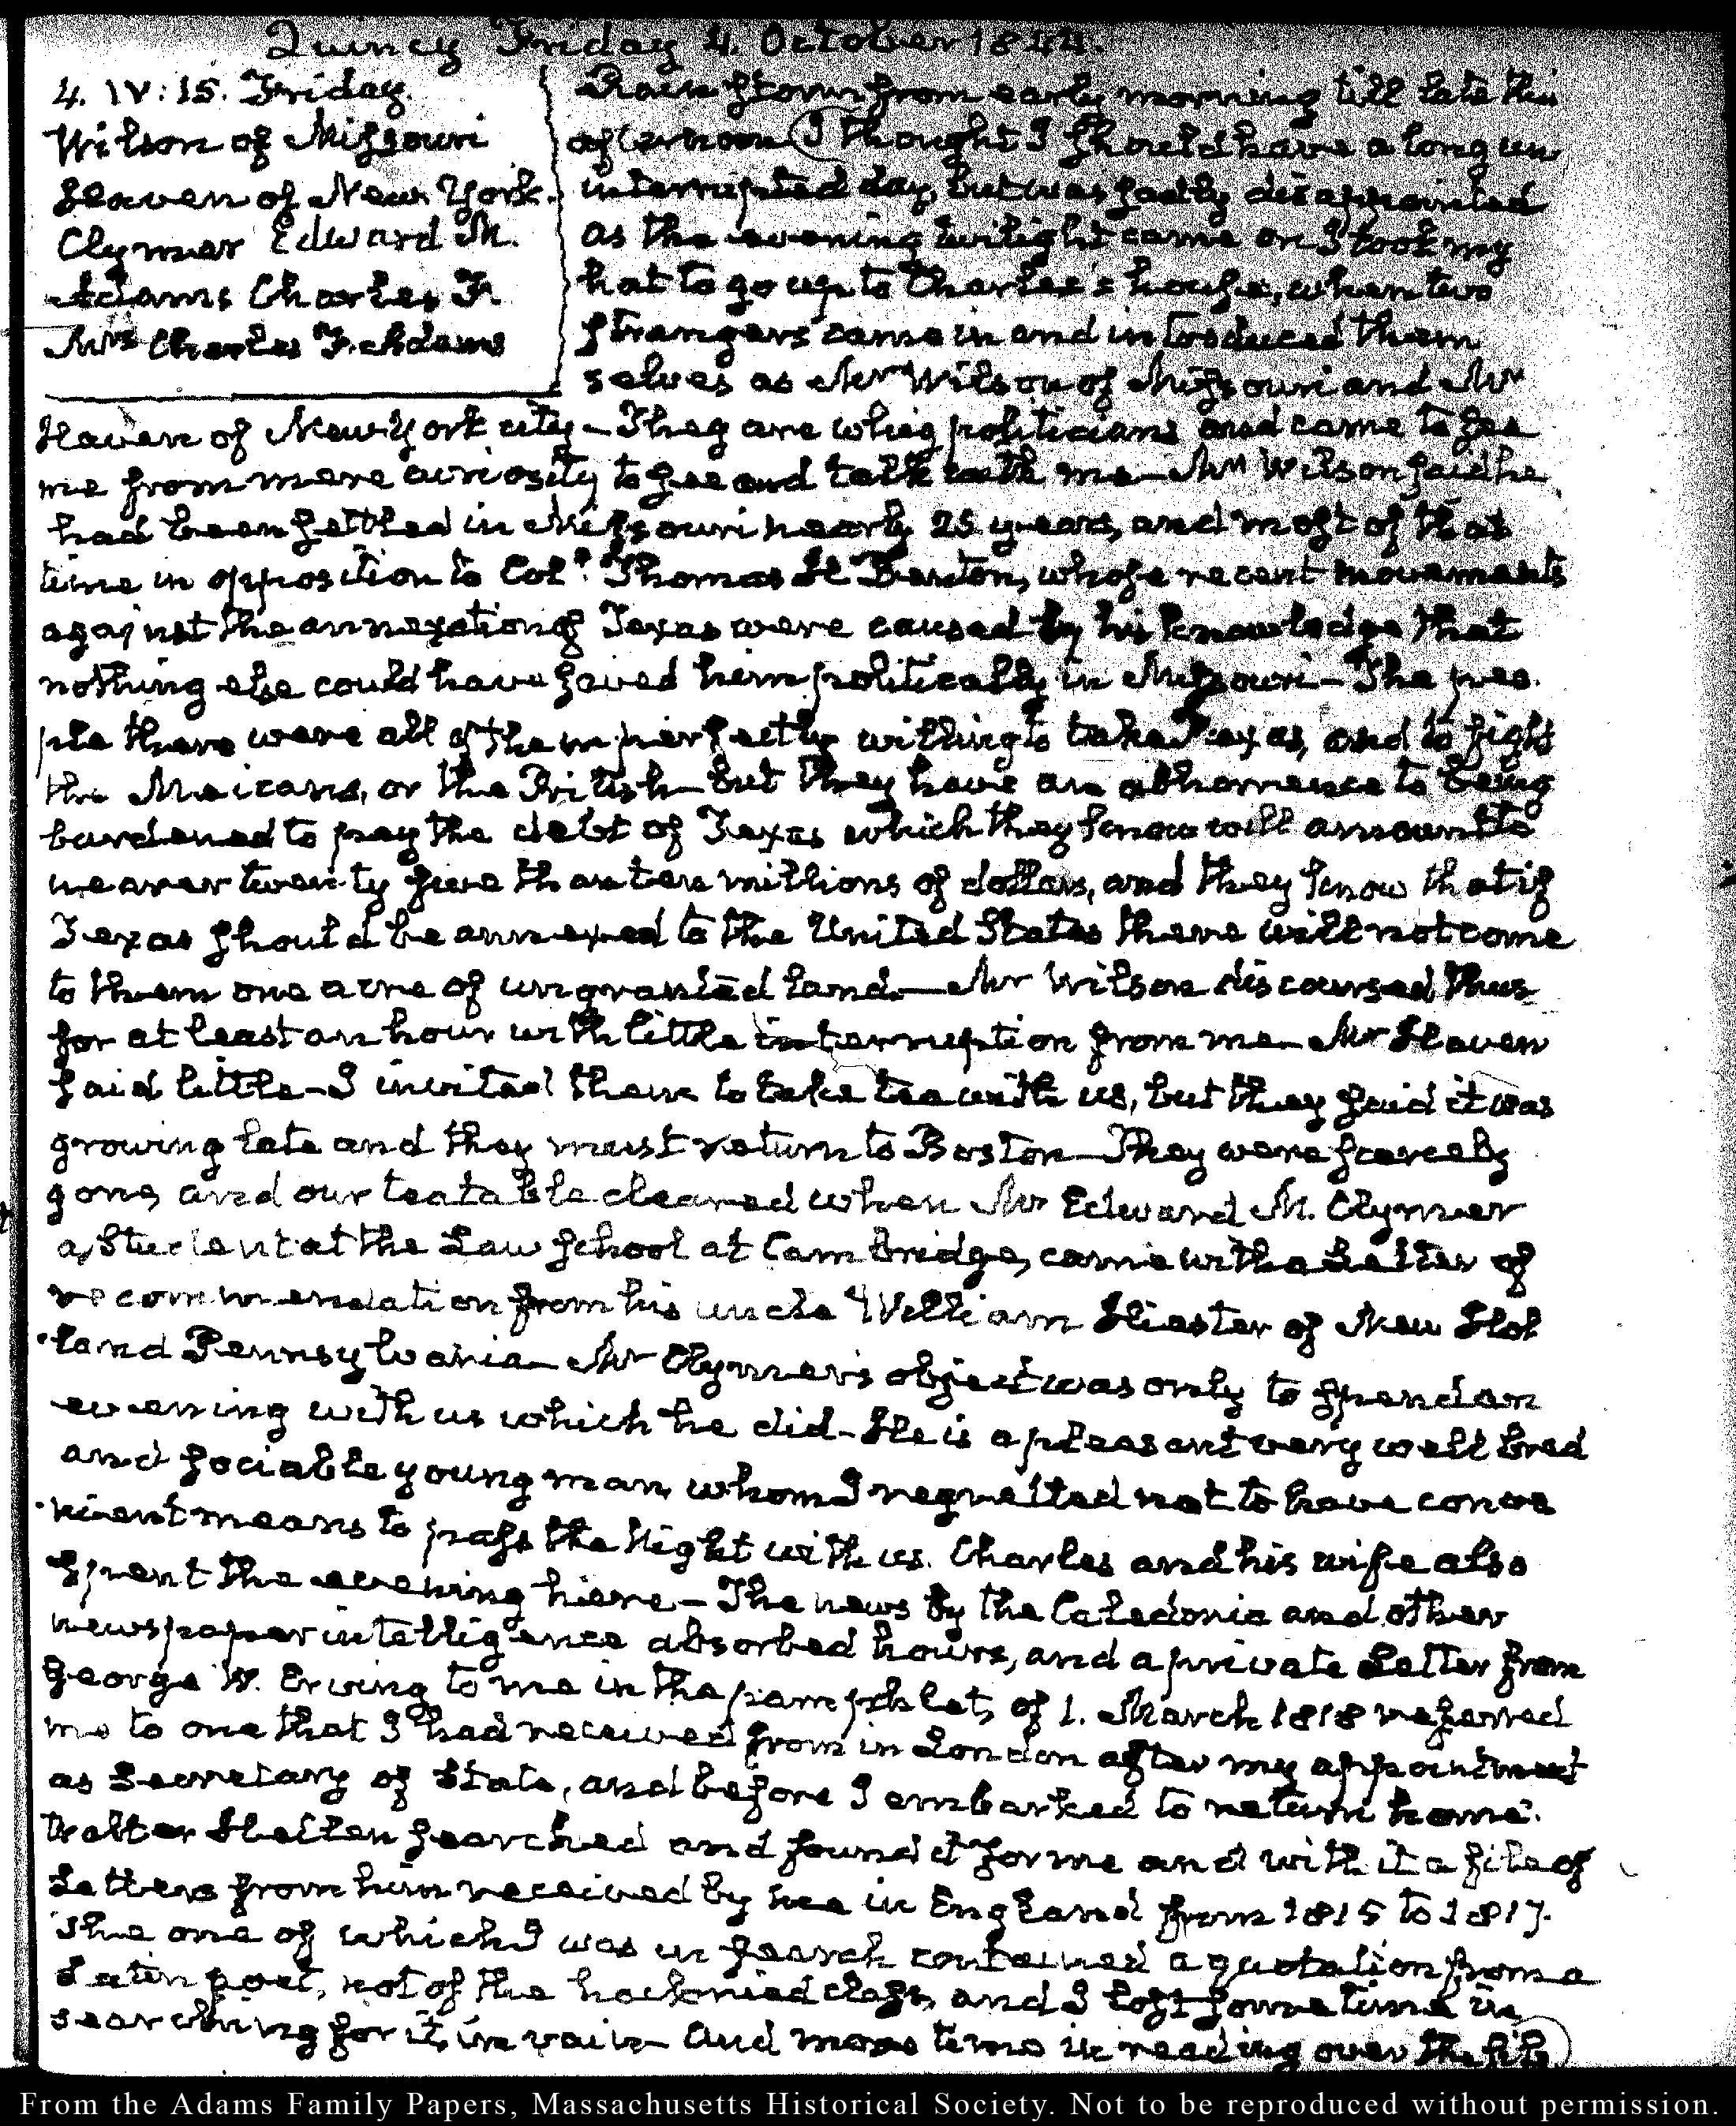 Quincy Friday 4. October 1844.
4. IV:15. Friday.
Wilson of Missouri
Haven of New York.
Clymer Edward M.
Adams Charles F.
Mrs Charles F. Adams
Rain storm from early morning till late this
afternoon I thought I should have a long un
interrupted day, but was sadly disappointed
as the evening twilight came on I took my
hat to go up to Charles's house, when two
strangers came in and introduced them
selves as Mr Wilson of Missouri and Mr
Haven of New York city – They are whig politicians and came to see
me from mere curiosity to see and talk with me – Mr Wilson said he
had been settled in Missouri nearly 25 years, and most of that
time in opposition to Coll. Thomas H Benton, whose recent movements
against the annexation of Texas were caused by his knowledge that
nothing else could have saved him politically in Missouri – The peo
ple there were all of them perfectly willing to take Texas, and to fight
the Meicans, or the British – but they have an abhorrence to being
burdened to pay the debt of Texas which they know will amount to
nearer twenty five than ten millions of dollars, and they know that if
Texas should be annexed to the United States there will not come
to them one acre of ungranted land. – Mr Wilson discoursed thus
for at least an hour with little interruption from me – Mr Haven
said little – I invited them to take tea with us, but they said it was
growing late and they must return to Boston – They were scarcely
gone, and our teatable cleared when Mr Edward M. Clymer
a, Student at the Law school at Cambridge, came with a Letter of
recommendation from his uncle William Hiester of New Hol
land Pennsylvania – Mr Clymer's object was only to spend an
evening with us which he did – He is a pleasant very well bred
and sociable young man, whom I regretted not to have conve
nient means to pass the Night with us. Charles and his wife also
spent the evening here – The news by the Caledonia and other
newspaper intelligence absorbed hours, and a private Letter from
George W. Erving to me in the pamphlet, of 1. March 1818 referred
me to one that I had received from in London after my appointment
as Secretary of State, and before I embarked to return home.
Walter Hellen searched and found it for me and with it a file of
Letters from him received by me in England from 1815 to 1817.
The one of which I was in search contained a quotation from a
Latin poet, not of the hacknied class, and I lost some time in
searching for it, in vain – and more time in reading over the file